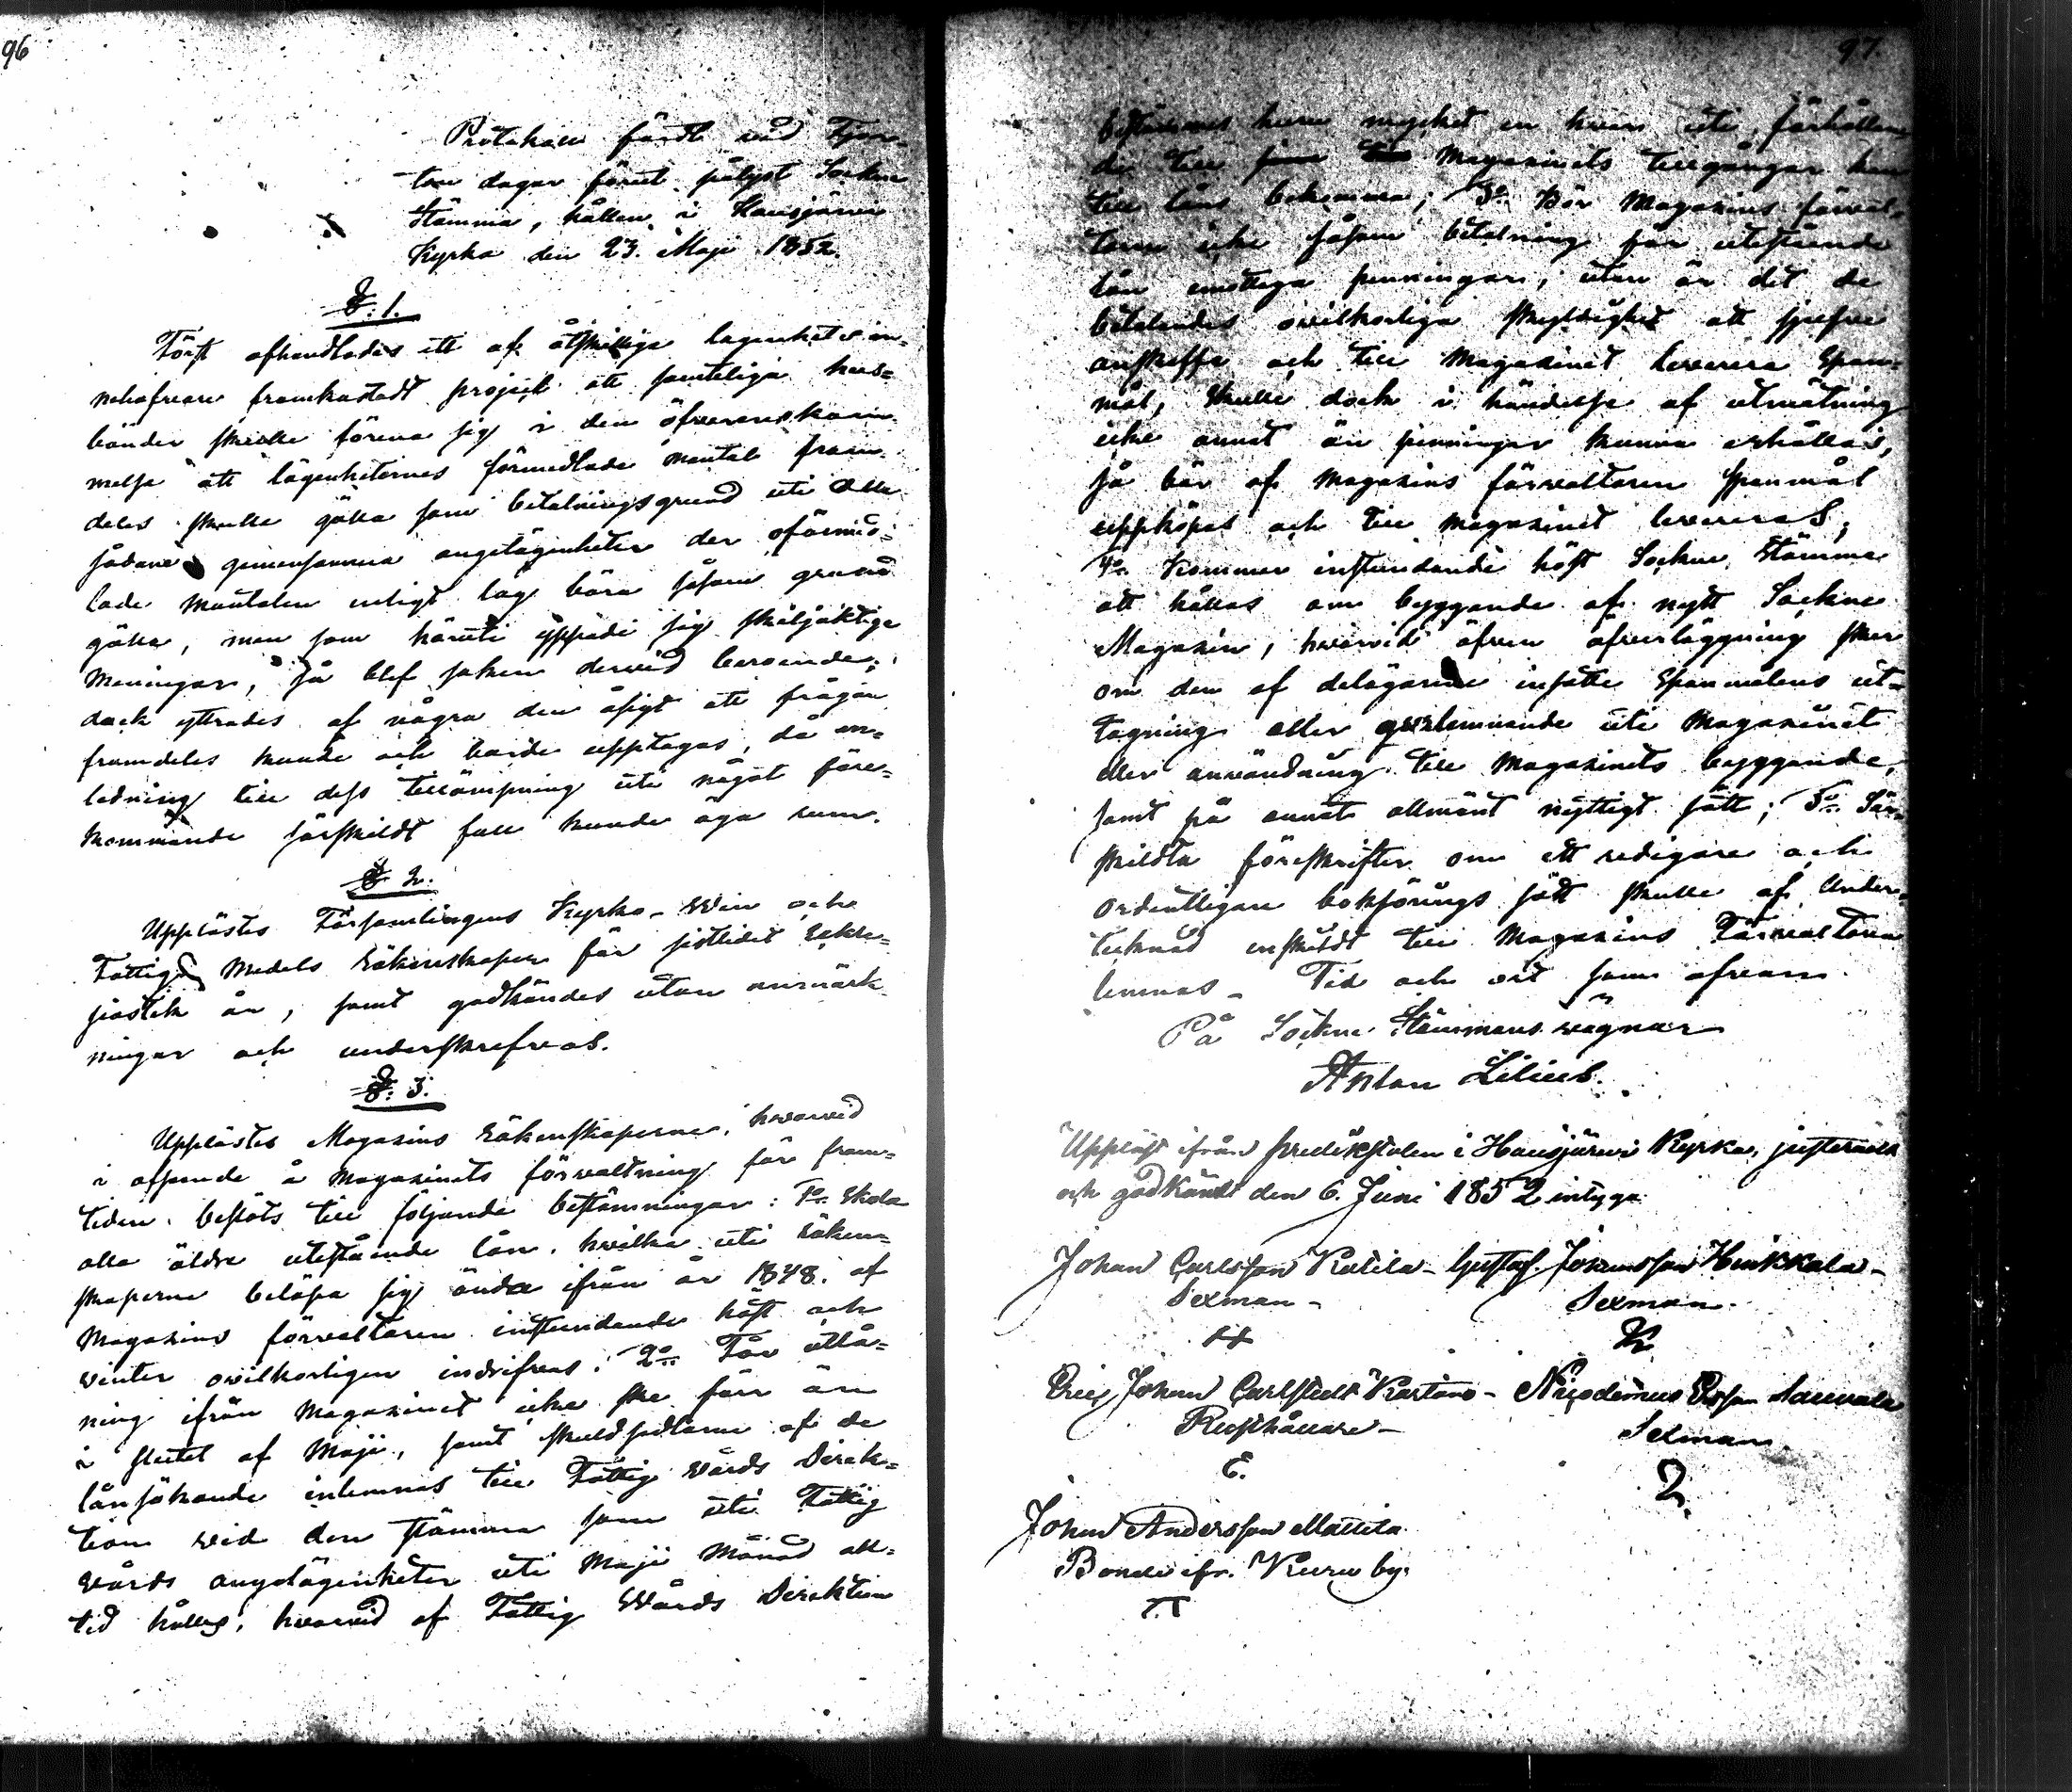 96
Protokoll fördt vid Fjor-
ton dagar förut pålyst Sockne
Stämma, hållen i Hausjärvi
Kyrka den 23. Maji 1852.
§. 1.
Först afhandlades ett af åtskillige lägenhets in-
nehafvare framkastadt projekt att samtelige hus-
bönder skulle förena sig i den öfverenskom-
melse att lägenheternes förmedlade mantal fram-
deles skulle gälla som betalningsgrund uti alla
sådane gemensamma angelägenheter der oförmed-
lade mantalen enligt lag böra såsom grund
gälla, men som häruti yppade sig skiljaktige
meningar, så blef saken dervid beroende;
dock yttrades af några den åsigt att frågan
framdeles kunde och borde upptagas, då an-
ledning till dess tillämpning uti något före-
kommande särskildt fall kunde äga rum.
§ 2.
Upplästes Församlingens Kyrko- Win och
Fattig Medels Räkenskaper för sistlidet Eckle-
siastik år, samt godkändes utan anmärk-
ningar och underskrefvos.
§. 3.
Upplästes Magasins Räkenskaperne, hvarvid
i afseende å Magasinets förvaltning för fram-
tiden beslöts till följande bestämningar: 1o Skola
alla äldre utestående lån, hvilka uti Räken-
skaperne belöpa sig ända ifrån år 1848. af
Magasins förvaltaren instundande höst och
vinter ovilkorligen indrifvas; 2o Får utlå-
ning ifrån Magasinet icke ske förr än
i slutet af Maji, samt skuldsedlarne af de
lånsökande inlemnas till Fattig vårds Direk-
tion vid den stämma som uti Fattig
vårds angelägenheter uti Maji Månad all-
tid hålles, hvarvid af Fattig Wårds Direktion
97.
bestämmes huru mycket en hvar uti förhållan-
de till Magasinets tillgångar kan
till låns bekomma; 3o Bör Magasins förval-
taren icke såsom betalning för utestående
lån emottaga penningar, utan är det de
betalandes ovilkorliga skyldighet att sjefve
anskaffa och till Magasinet leverera Span-
mål, skulle dock i händelse af utmätning
icke annat än penningar kunna erhållas,
så bör af Magasins förvaltaren Spanmål
uppköpas och till Magasinet levereras;
4o Kommer instundande höst Sockne Stämma
att hållas om byggande af nytt Sockne
Magasin, hvarvid äfven öfverläggning sker
om den af delägarene insatte Spanmålens ut-
tagning eller qvarlemnande uti Magasinet
eller användning till Magasinets byggande,
samt på annat allmänt nyttigt sätt; 5o Sär-
skildta föreskrifter om ett redigare och
ordentligare bokförings sätt skulle af Under-
tecknad enskildt till Magasins Förvaltaren
lemnas. Tid och ort som ofvan.
På Sockne Stämmans vägnar
Anton Lilius.
Uppläst ifrån predikstolen i Hausjärvi Kyrka, justeradt
och godkändt den 6. Juni 1852 intyga:
Johan Carlsson Katila - Gustaf Johansson Heikkala -
Sexman - Sexman.
Eric Johan Carlstedt Kartano - Nicodemus Ersson Sauvala
Rusthållare - Sexman.
E. 2.
Johan Andersson Mattila
Bonde ifr. Kuru by.